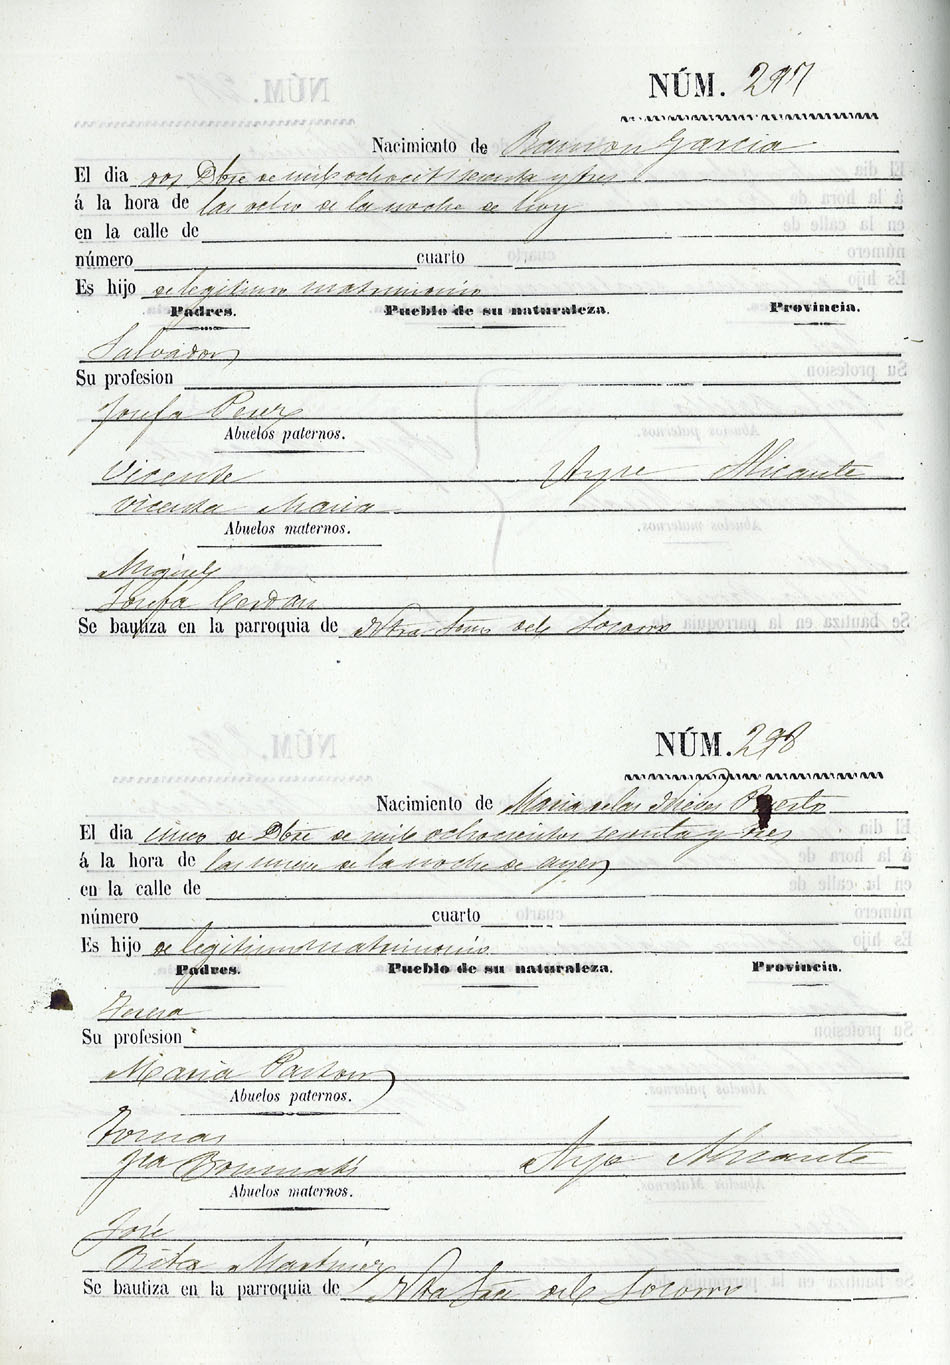 NÚM. 297
Nacimiento de Ramon Garcia
El dia dos Dbre de mil ochoct sesenta y tres
á la hora de las ocho de la noche de hoy
en la calle de
número cuarto
Es hijo de legitimo matrimonio
Padres. Pueblo de su naturaleza. Provincia.
Salvador
Su profesion
Josefa Perez
Abuelos paternos.
Vicente Aspe Alicante
Vicenta Maria
Abuelos maternos.
Miguel
Josefa Cerdán
Se bautiza en la parroquia de Ntra Sra del Socorro
NÚM. 298
Nacimiento de Maria de las Nieves Puerto
El dia cinco de Dbre de mil ochocientos sesenta y tres
á la hora de las nueve de la noche de ayer
en la calle de
número cuarto
Es hijo de legitimo matrimonio
Padres. Pueblo de su naturaleza. Provincia.
Su profesion
Maria Pastor
Abuelos paternos.
Tomas
Jfa Bonmati Aspe Alicante
Abuelos maternos.
José
Rita Martinez
Se bautiza en la parroquia de Ntra Sra del Socorro